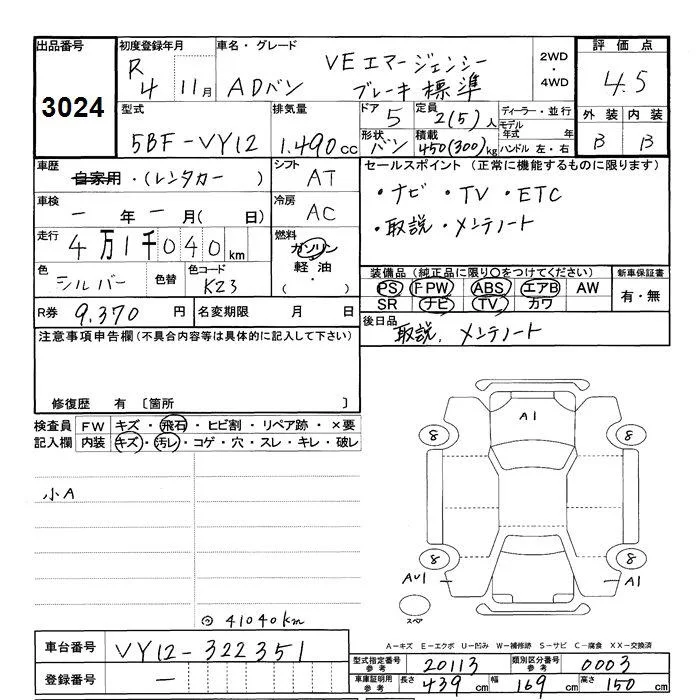 出品番号
3024
初度登録年月
R 4 11月
車名・グレード
ADバン
VEエマージェンシー
ブレーキ標準
2WD
・
4WD
評価点
4.5
外装 内装
B B
型式
5BF-VY12
排気量
1.490cc
ドア 5
形状 バン
定員 2(5)人
積載 450(300)kg
ディーラー・並行
モデル
年式 年
ハンドル 左・右
車歴
自家用・(レンタカー)
シフト
AT
車検
ー年ー月(日)
冷房
AC
走行
4万1千040km
燃料
ガソリン
軽油
・
( )
色
シルバー
色替
色コード
K23
R券 9.370円
名変期限 月 日
セールスポイント(正常に機能するものに限ります)
・ナビ ・TV ・ETC
・取説・メンテノート
装備品(純正品に限り○をつけてください)
PS PW ABS エアB AW
SR ナビ TV カワ
新車保証書
有・無
後日品
取説. メンテノート
注意事項申告欄(不具合内容等は具体的に記入して下さい)
修復歴 有〔箇所 〕
検査員
記入欄
FW キズ・飛石・ヒビ割・リペア跡・×要
内装 キズ・汚レ・コゲ・穴・スレ・キレ・破レ
小A
41040km
A1
8 8
8 8
AU1 A1
スペア
A-キズ E-エクボ U-凹み W-補修跡 S-サビ C-腐食 XX-交換済
車台番号 VY12-322351
登録番号 ー
型式指定番号
参考
20113
類別区分番号
参考
0003
車庫証明用
参考
長さ 439cm 幅 169cm 高さ 150cm